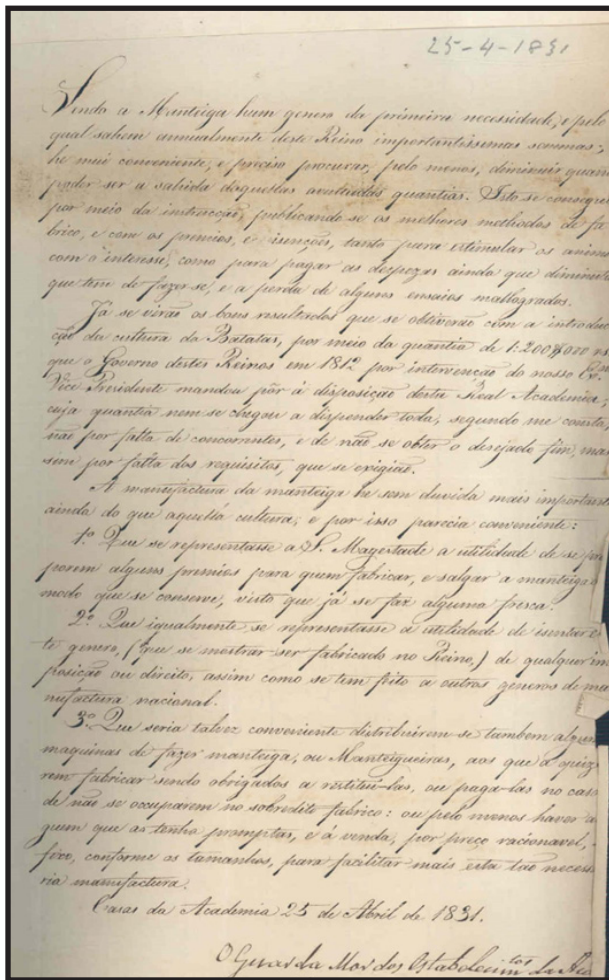 25-4-1831
Sendo a Manteiga hum genero da primeira necessidade, e pelo
qual sahem annualmente deste Reino importantissimas sommas;
he mui conveniente, e preciso procurar, pelo menos, diminuir quan
poder ser a sahida daquellas avultadas quantias. Isto se conseg
por meio da instrucção, publicando-se os melhores methodos de fa
brico, e com os premios, e isenções, tanto para estimular os animos
com o interesse, como para pagar as despezas ainda que diminu
que tem de fazer-se, e a perda de alguns ensaios mallogrados.
Já se virão os bons resultados que se obtiverão com a introduc
ção da cultura da Batatas, por meio da quantia de 1:200$000 rs
que o Governo destes Reinos em 1812 por intervenção do nosso Exmo
Vice Presidente mandou pôr á disposição desta Real Academia;
cuja quantia nem se chegou a dispender toda, segundo me consta,
não por falta de concorrentes, e de não se obter o desejado fim, mas
sim por falta dos requisitos, que se exigião.
A manufactura da manteiga he sem duvida mais important
ainda do que aquella cultura, e por isso parecia conveniente:
1º Que se representasse a S. Magestade a utilidade de se pro
porem alguns premios para quem fabricar, e salgar a manteiga
modo que se conserve, visto que já se faz alguma fresca.
2º Que igualmente se representasse a utilidade de isentar es
te genero, (que se mostrar ser fabricado no Reino,) de qualquer im
posição ou direito, assim como se tem feito a outros generos de ma
nufactura nacional.
3º Que seria talvez conveniente distribuirem-se tambem algum
maquinas de fazer manteiga, ou Manteigueiras, aos que a quize
rem fabricar sendo obrigados a restitui-las, ou paga-las no caso
de não se occuparem no sobredito fabrico: ou pelo menos haver a
guem que as tenha promptas, e á venda, por preço racionavel,
fixo, conforme os tamanhos, para facilitar mais esta tão necess
ria manufactura.
Casas da Academia 25 de Abril de 1831.
O Guarda Mor dos Estabelecimtos da Aca